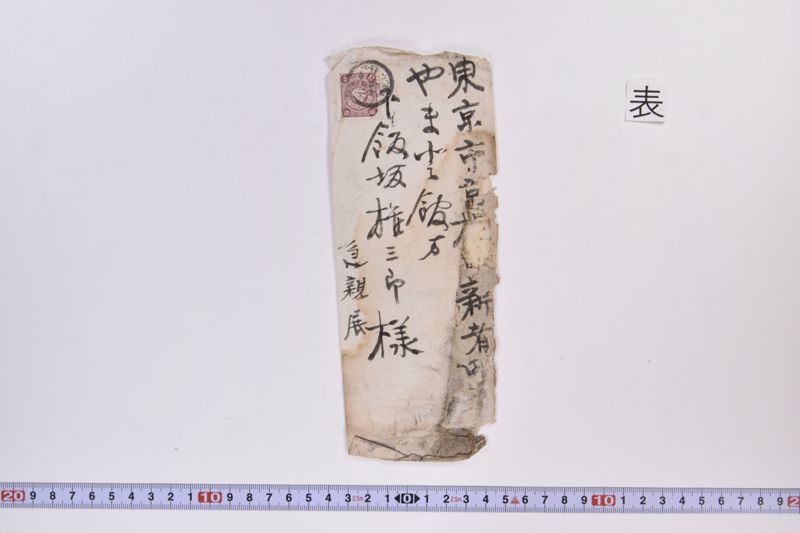 東京市京 新肴町
やまと館方
下飯坂権三郎様
急親展
表
20 9 8 7 6 5 4 3 2 1 10 9 8 7 6 5 4 3 2 1 0 1 2 3 4 5 6 7 8 9 10 1 2 3 4 5 6 7 8 9 2